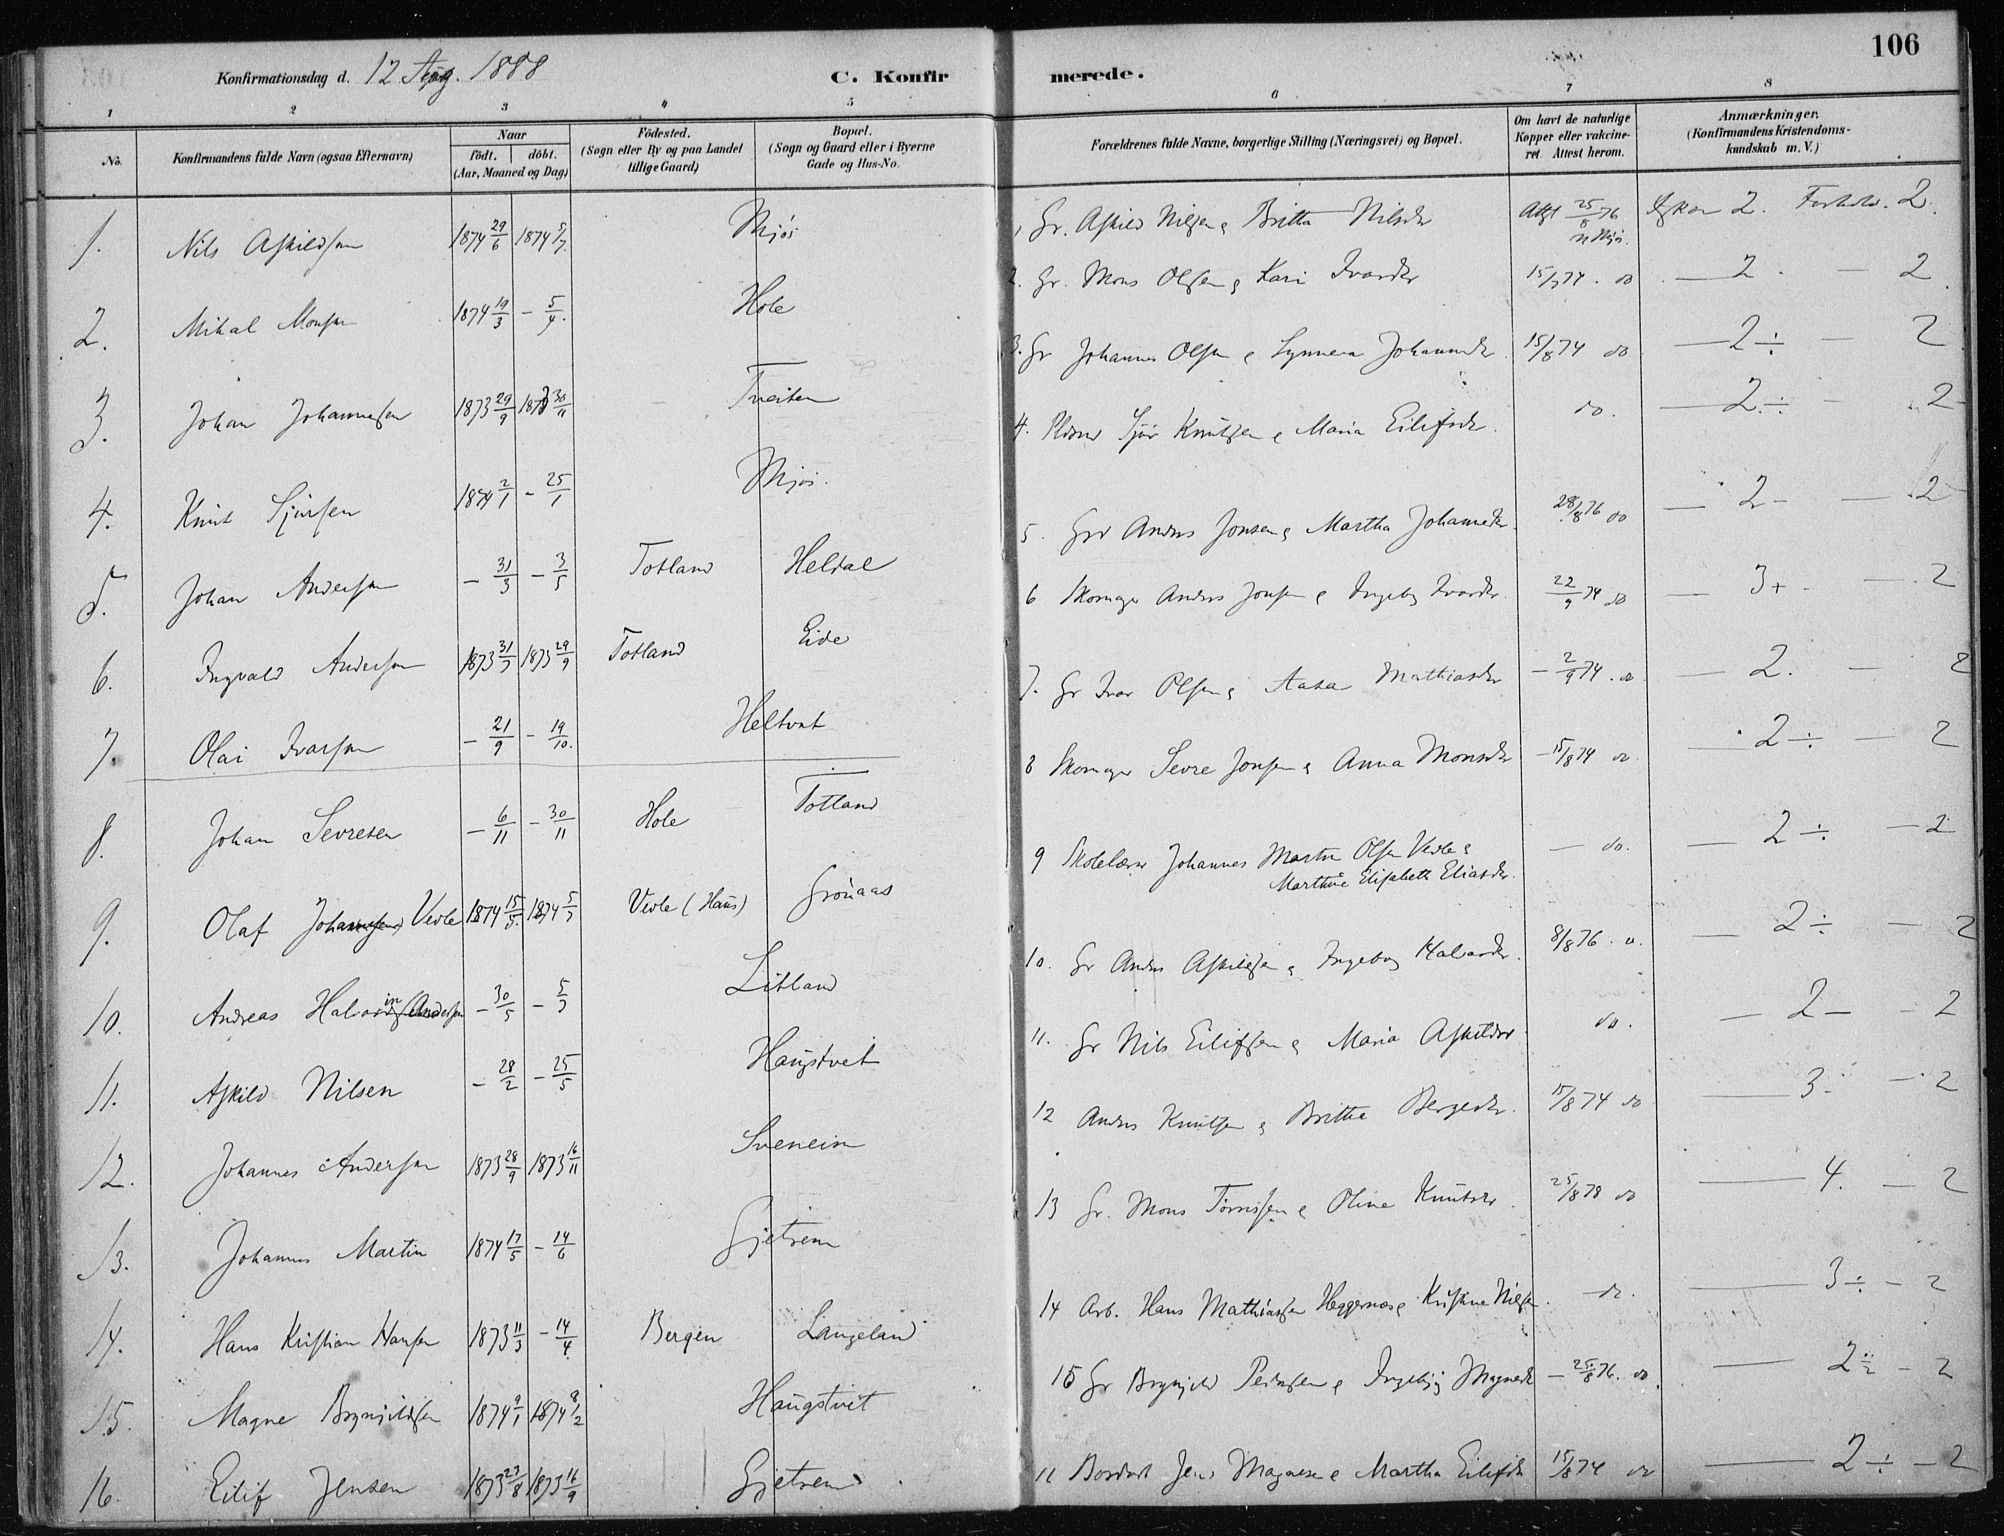 106
Konfirmationsdag d. 12 Aug. 1888 C. Konfirmerede.
1 2 3 4 5 6 7 8
No. Konfirmandens fulde Navn (ogsaa Efternavn) Naar födt. döbt. (Aar, Maaned og Dag) Födested. (Sogn eller By og paa Landet tillige Gaard) Bopæl. (Sogn og Gaard eller i Byerne Gade og Hus-No. Forældrenes fulde Navne, borgerlige Stilling (Næringsvei) og Bopæl. Om havt de naturlige Kopper eller vakcineret. Attest herom. Anmærkninger. (Konfirmandens Kristendomskundskab m. V.)
1. Nils Askildsen 1874 29/6 1874 5/7 Mjøs 1 Gr. Askild Nilsen & Britta Nilsdr Attst 25/8 76 Kskon 2. Forhold. 2.
2. Mikal Monsen 1874 19/3 – 5/4. Hole 2. Gr. Mons Olsen & Kari Ivarsdr 15/7 74. do — 2. — 2
3. Johan Johannessen 1873 29/9 1873 30/11 Tveiten 3. Gr Johannes Olsen & Synneva Johannesdr 15/8 74 do — 2 ÷ — 2
4. Knut Sjursen 1874 2/1 – 25/1 Mjøs. 4. Sjur Knutsen & Maria Eilifsdr. do. — 2 ÷ – 2
5. Johan Andersen – 31/3 – 3/5 Totland Heldal 5. Grd Anders Jonsen & Martha Johannesdr. 28/8 76 do — 2 – — 2
6. Ingvald Andersen 1873 31/7 1873 29/9 Totland Eide 6 Skomager Anders Jonsen & Ingeb Ivarsdr. 22/9 74 do — 3+ — 2
7. Olai Ivarsen – 21/9 – 19/10. Heltvet 7. Gr Ivar Olsen & Aasa Mathiasdr – 2/9 74. do — 2. — 2
8. Johan Sevresen – 6/11 – 30/11 Hole Totland 8 Skomager Sevre Jonsen & Anna Monsdr – 15/8 74 do — 2 ÷ — 2
9. Olaf Johannesen Vevle 1874 15/5. 1874 5/7 Vevle (Haus) Grønaas 9 Skolelærer Johannes Martin Olsen Vevle & Marthine Elisabeth Eliasdr. — do. — 2 ÷ – 2
10. Andreas Halvard Andersen – 30/5 – 5/7 Litland 10. Gr Anders Askildsen & Ingeborg Halvardr. 8/8 76. do. — 2 ÷ – 2
11. Askild Nilsen – 28/2 – 25/5 Haugstvet 11. Gr Nils Eilifsen & Maria Askildsdr do. — 2 – – 2
12. Johannes Andersen 1873 28/9 1873 16/11 Svenein 12 Anders Knutsen & Britha Bergesdr. 15/8 74 do — 3 ÷ – 2
13. Johannes Martin 1874 17/5 – 14/6 Gjetrem 13 Gr. Mons Tørrissen & Oline Knutsdr 25/8 78 do — 4. – 2
14. Hans Kristian Hansen 1873 11/3 – 14/4 Bergen Langeland 14 Arb. Hans Mathiassen Heggernes & Kristine Nilsen. — do. — 3 ÷ – 2
15. Magne Brynjildsen 1874 9/1 1874 8/2 Haugstvet 15 Gr Brynjild Pedersen & Ingebjg Magnesdr – 25/8 76. do. — 2 ÷ – 2
16. Eilif Jensen 1873 23/8 1873 16/9 Gjetrem 16 Jens Magnesen & Martha Eilifsdr 15/8 74 do — 2 ÷ – 2